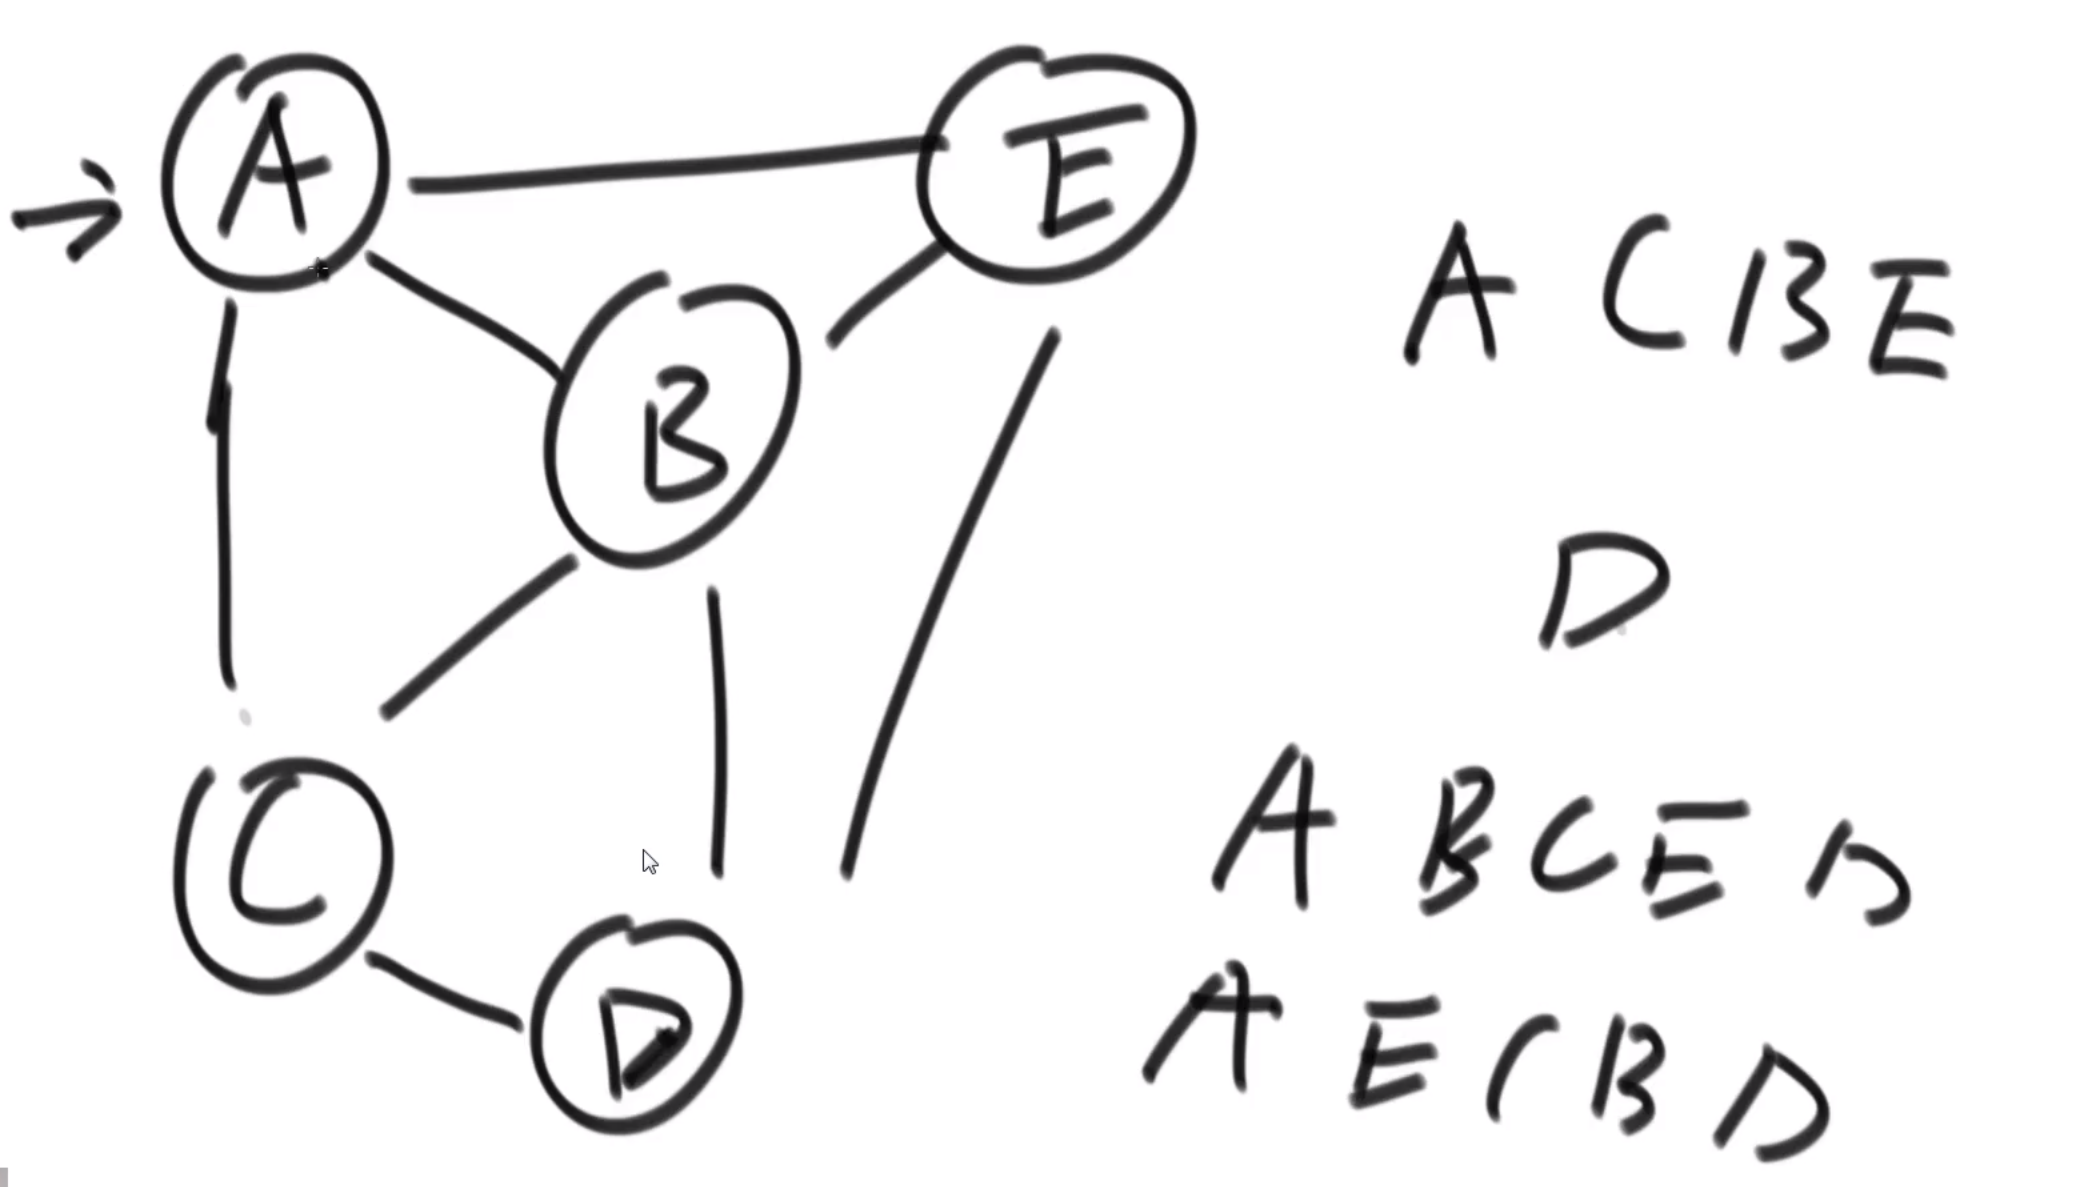 A E
B
C
D
A C B E
D
A B C E D
A E C B D